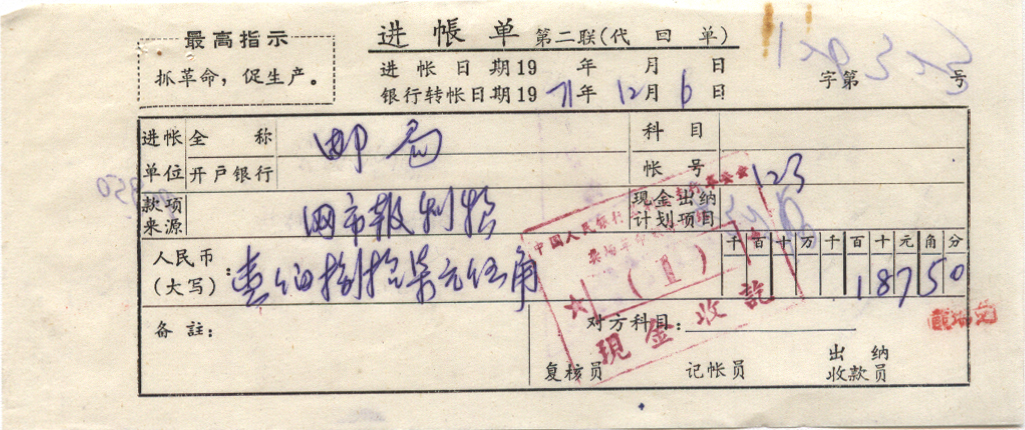 最高指示
抓革命，促生产。
进帐单 第二联(代回单)
进帐日期19 年 月 日
银行转帐日期19 71年 12月 6日
字第 号
进帐单位 全称 邮局 科目
开户银行 帐号 123
款项来源 现金出纳计划项目
千百十万千百十元角分
人民币(大写)：壹佰捌拾柒元伍角 18750
备註：
对方科目：
复核员 记帐员 出纳收款员
中国人民银行
(1)
现金收訖